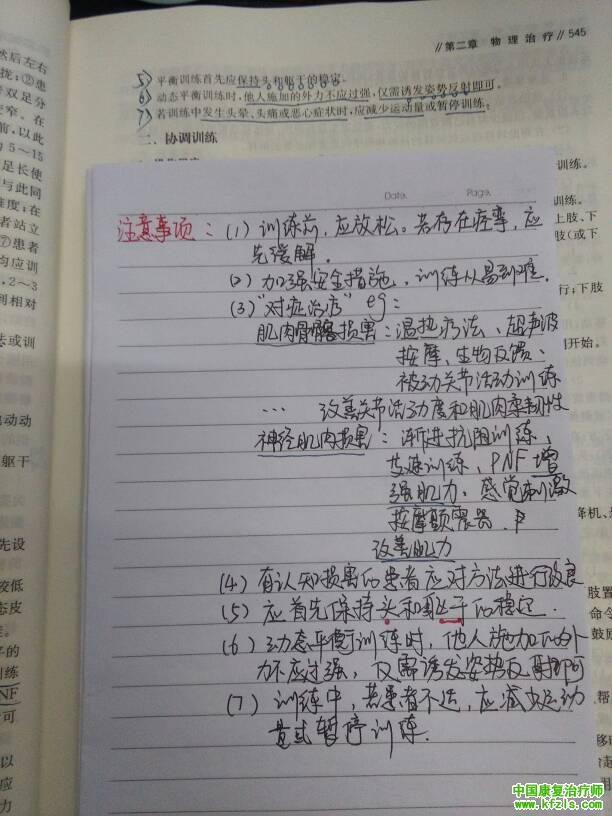 //第二章 物理治疗// 545
5) 平衡训练首先应保持头和躯干的稳定。
6) 动态平衡训练时,他人施加的外力不应过强,仅需诱发姿势反射即可。
7) 若训练中发生头晕、头痛或恶心症状时,应减少运动量或暂停训练。
二、协调训练
Date. Page.
注意事项:(1) 训练前,应放松。若存在痉挛,应
先缓解.
(2) 加强安全措施,训练从易到难.
(3) "对症治疗" eg:
肌肉骨骼损害:温热疗法、超声波
按摩、生物反馈、
被动关节活动训练
… 改善关节活动度和肌肉柔韧性
神经肌肉损害:渐进抗阻训练、
PNF 增
强肌力. 感觉刺激
按摩 震器
改善肌力
(4) 有认知损害的患者应对方法进行改良
(5) 应首先保持头和躯干的稳定.
(6) 动态平衡训练时,他人施加的外
力不应过强,仅需诱发姿势反射即可
(7) 训练中,若患者不适,应减少运动
量或暂停训练.
然后左右
②患
双足分
窄。在
前,以此
5~15
足长使
与此同
难度;在
者站立
⑦患者
均应训
2~3
到相对
法或训
电动动
躯干
先设
较低
态皮
训练
NF
可
以
应
力
训练。
训练。
上肢、下
肢(或下
行;下肢
开始。
降机、
下肢置
命令
鼓励
帮
移
中国康复治疗师
www.kfzls.com